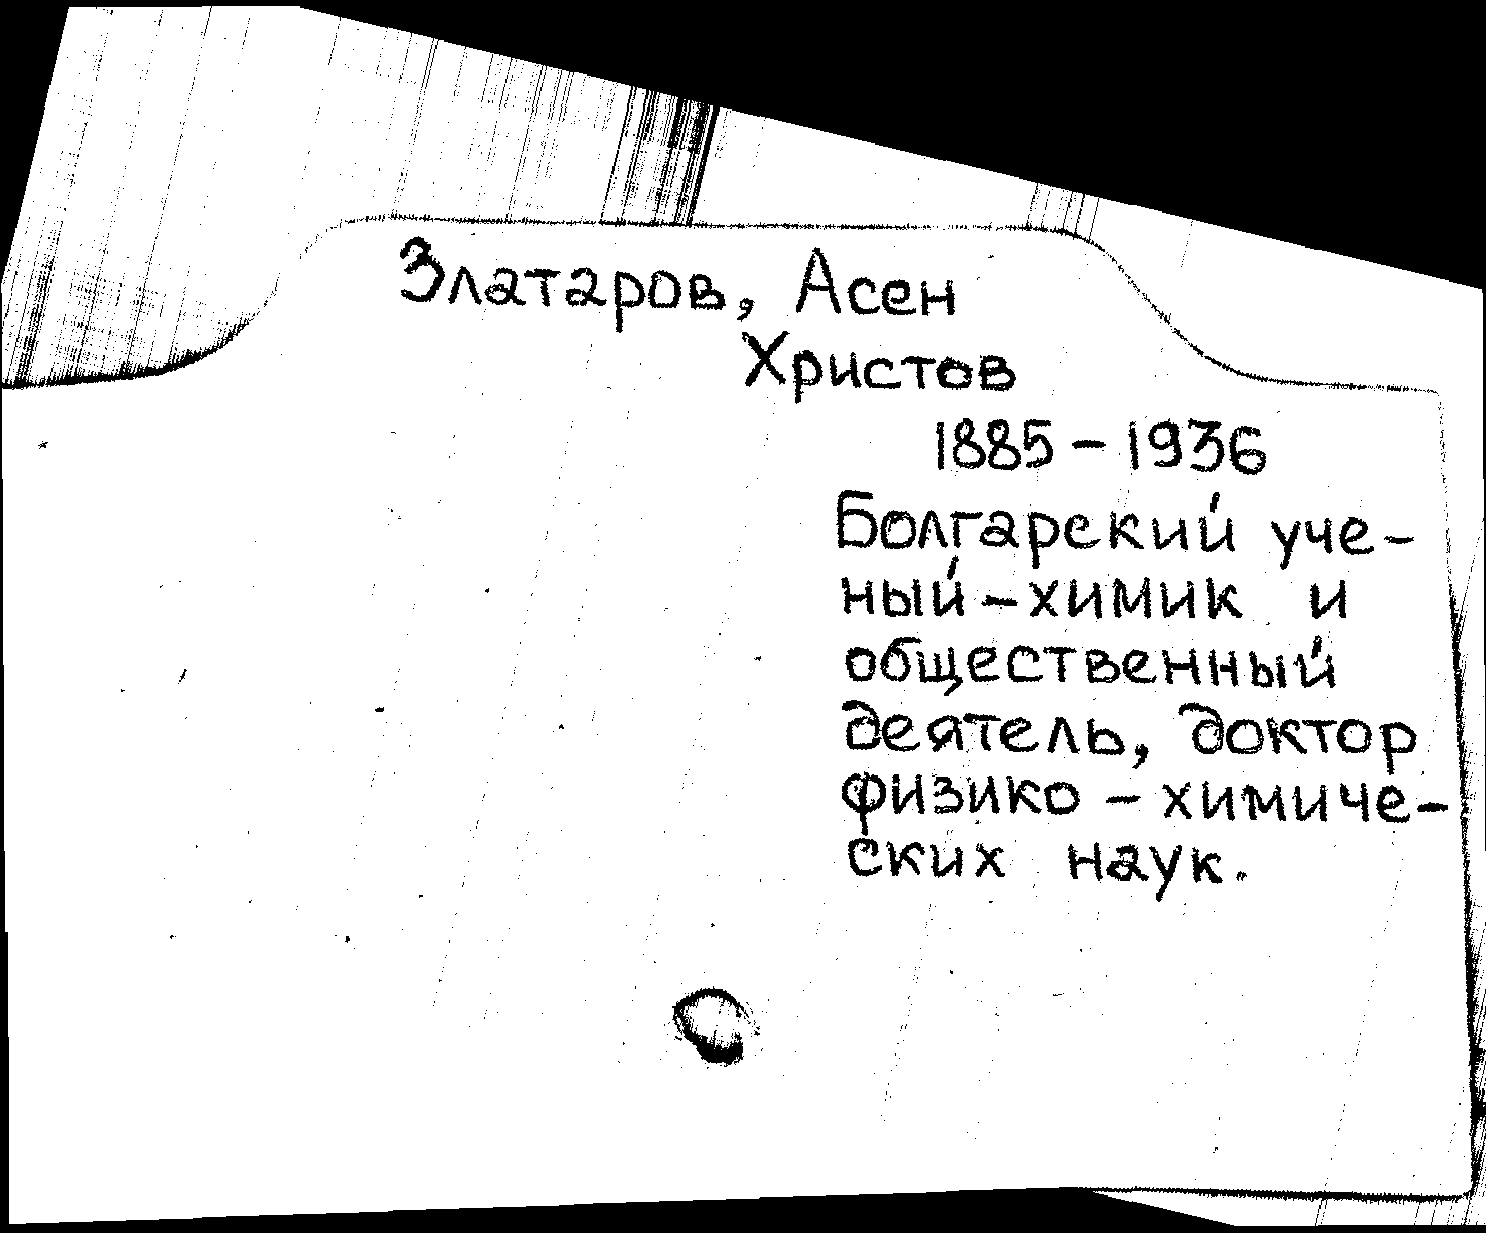 Златаров, Асен
Христов
1885-1936
Болгарский уче-
ный-химик и
общественный
деятель, доктор
физико-химиче-
ских наук.